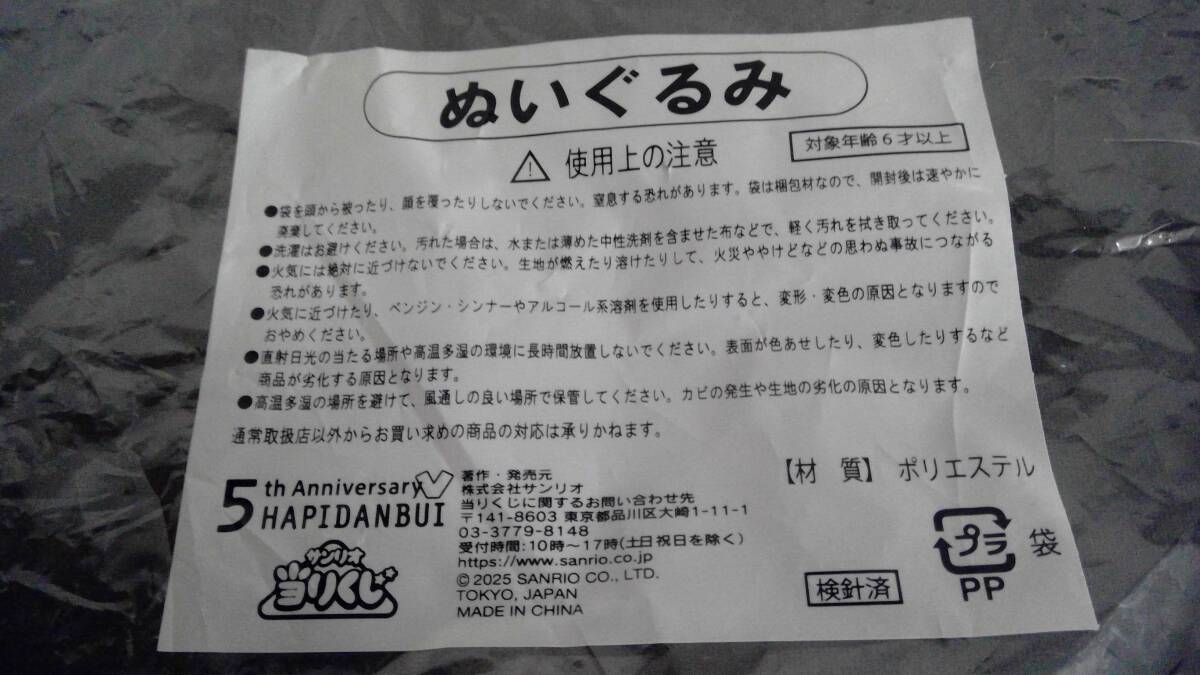 ぬいぐるみ
使用上の注意
対象年齢6才以上
●袋を頭から被ったり、顔を覆ったりしないでください。窒息する恐れがあります。袋は梱包材なので、開封後は速やかに
廃棄してください。
●洗濯はお避けください。汚れた場合は、水または薄めた中性洗剤を含ませた布などで、軽く汚れを拭き取ってください。
●火気には絶対に近づけないでください。生地が燃えたり溶けたりして、火災ややけどなどの思わぬ事故につながる
恐れがあります。
●火気に近づけたり、ベンジン・シンナーやアルコール系溶剤を使用したりすると、変形・変色の原因となりますので
おやめください。
●直射日光の当たる場所や高温多湿の環境に長時間放置しないでください。表面が色あせしたり、変色したりするなど
商品が劣化する原因となります。
●高温多湿の場所を避けて、風通しの良い場所で保管してください。カビの発生や生地の劣化の原因となります。
通常取扱店以外からお買い求めの商品の対応は承りかねます。
5th Anniversary
HAPIDANBUI
サンリオ
当りくじ
著作・発売元
株式会社サンリオ
当りくじに関するお問い合わせ先
〒141-8603 東京都品川区大崎1-11-1
03-3779-8148
受付時間:10時~17時(土日祝日を除く)
https://www.sanrio.co.jp
© 2025 SANRIO CO., LTD.
TOKYO, JAPAN
MADE IN CHINA
【材 質】 ポリエステル
プラ
袋
PP
検針済